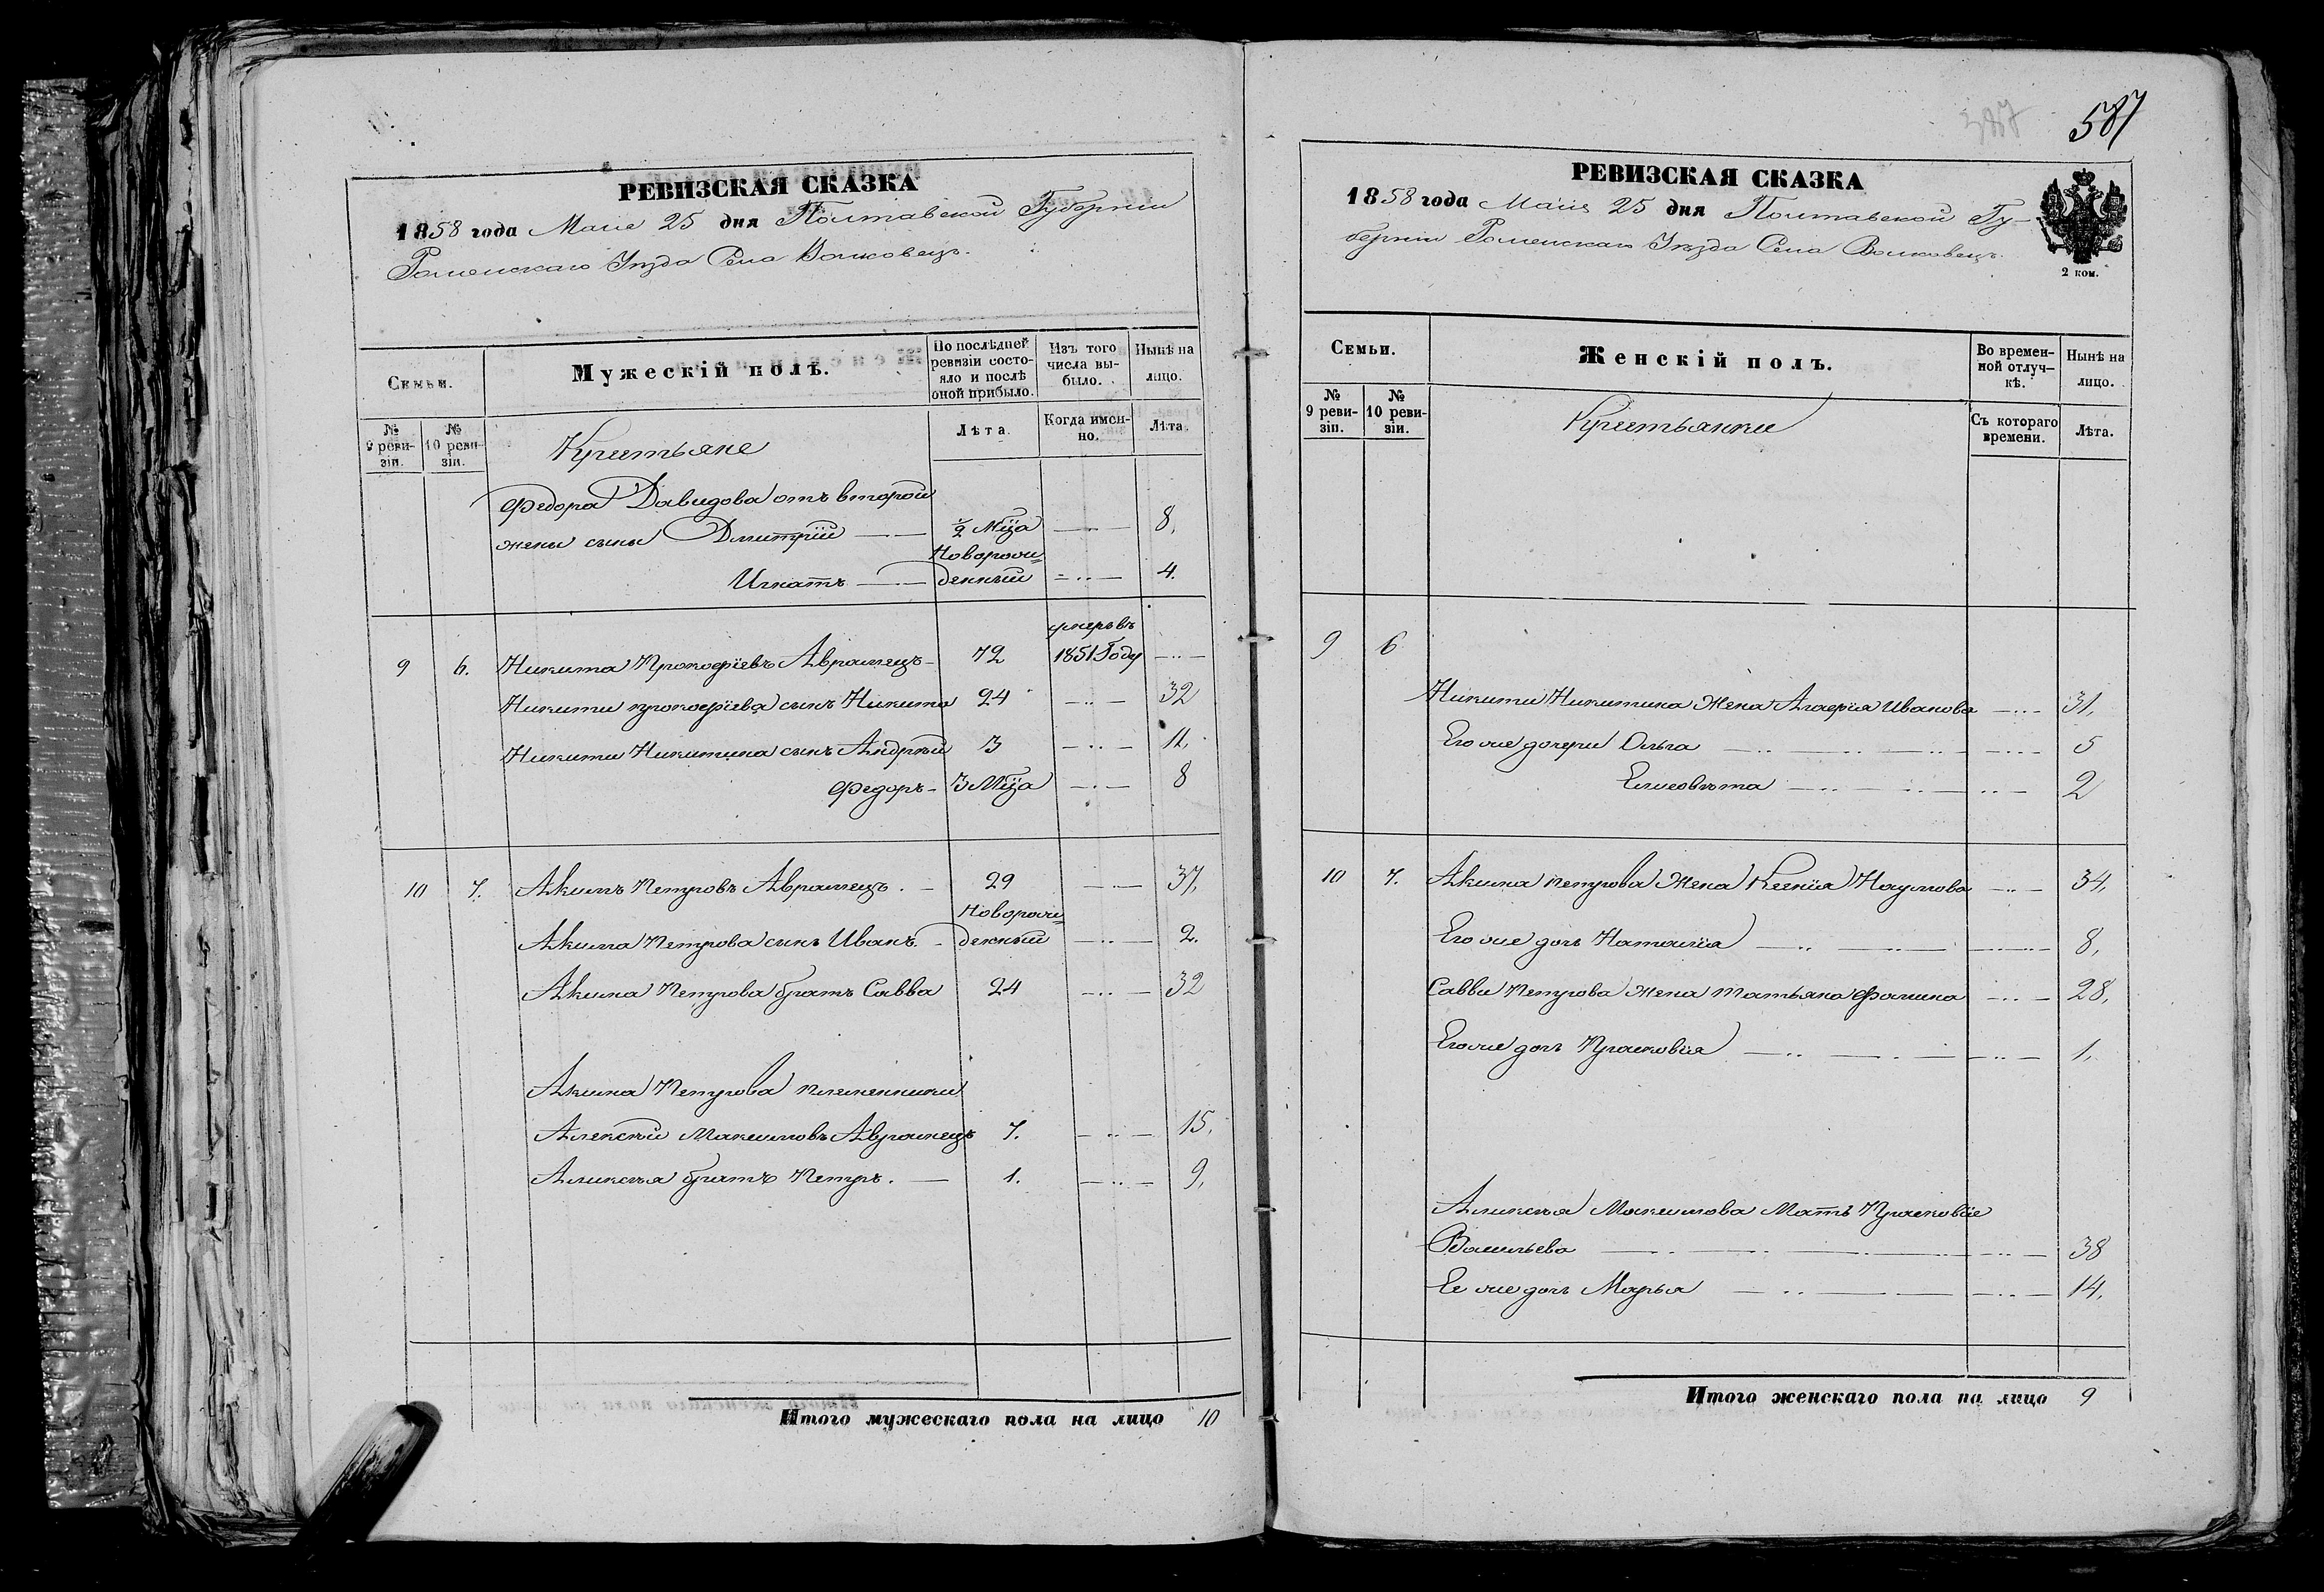 РЕВИЗСКАЯ СКАЗКА
1858 года Маие 25 дня Полтавской Губернии
Роменскаго Уезда Села Волковецъ.
Семьи.
Мужескій полъ.
По послѣдней ревизіи состояло и послѣ оной прибыло.
Изъ того числа выбыло.
Нынѣ на лицо.
№ 9 ревизіи.
№ 10 ревизіи.
Лѣта
Когда именно.
Лѣта
Кристьяне
Федора Давидова отъ второй
жены сыны Дмитрій 1/2 Мца 8,
Игнатъ Новорожденный 4.
9 6. Никита Прокофіевъ Аврамецъ 72 умеръ въ 1851 Году
Никиты прокофіева сынъ Никита 24 32
Никиты Никитина сынъ Андрѣй 3 11,
Федоръ 3 Мца 8
10 7. Акимъ Петровъ Аврамецъ. 29 37,
Акима Петрова сынъ Иванъ. Новорожденный 2.
Акима Петрова братъ Савва 24 32
Акима Петрова племенники
Алексѣй Максимовъ Аврамецъ 7. 15,
Аликсѣя братъ Петръ. 1. 9,
Итого мужескаго пола на лицо 10
587
387
РЕВИЗСКАЯ СКАЗКА
1858 года Маие 25 дня Полтавской Гу-
берніи Роменскаго Уѣзда Села Волковецъ.
2 коп.
Семьи.
Женскій полъ.
Во временной отлучкѣ.
Нынѣ на лицо.
№ 9 ревизіи.
№ 10 ревизіи.
Съ котораго времени.
Лѣта.
Кристьянки
9 6
Никиты Никитина Жена Агафія Иванова 31,
Его же дочери Ольга 5
Елисовѣта 2
10 7. Акима петрова Жена Ксенія Наумова 34,
Его же дочь Наталія 8,
Саввы Петрова Жена татьяна Фомина 28,
Его же дочь Прасковія 1,
Аликсѣя Максимова Мать Прасковіе
Васильева 38
Ее же дочь Марья 14,
Итого женскаго пола на лицо 9